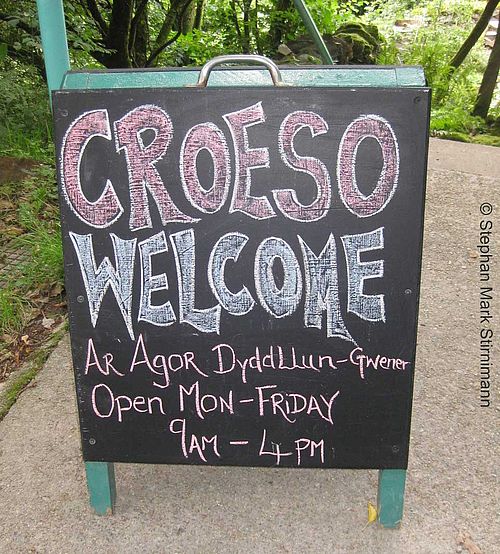 CROESO
WELCOME
AR AGOR DYDDLLUN-GWENER
OPEN MON-FRIDAY
9AM - 4PM
© Stephan Mark Stirnimann